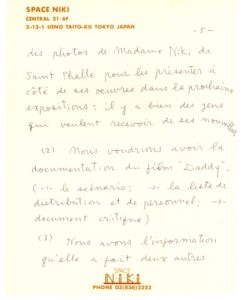 SPACE NIKI
CENTRAL 21-6F
2-12-1 UENO TAITO-KU TOKYO JAPAN
-5-
des photos de Madame Niki de
Saint Phalle pour les présenter à
côté de ses oeuvres dans la prochaine
expositions: il y a bien des gens
qui veulent recevoir de ses nouvelles
(2) Nous voudrions avoir la
documentation du film "Daddy".
le scénario; la liste de
distribution et de personnel;
document critique)
(3) Nous avons l'information
qu'elle a fait deux autres
SPACE
NiKi
PHONE 03(836)2323